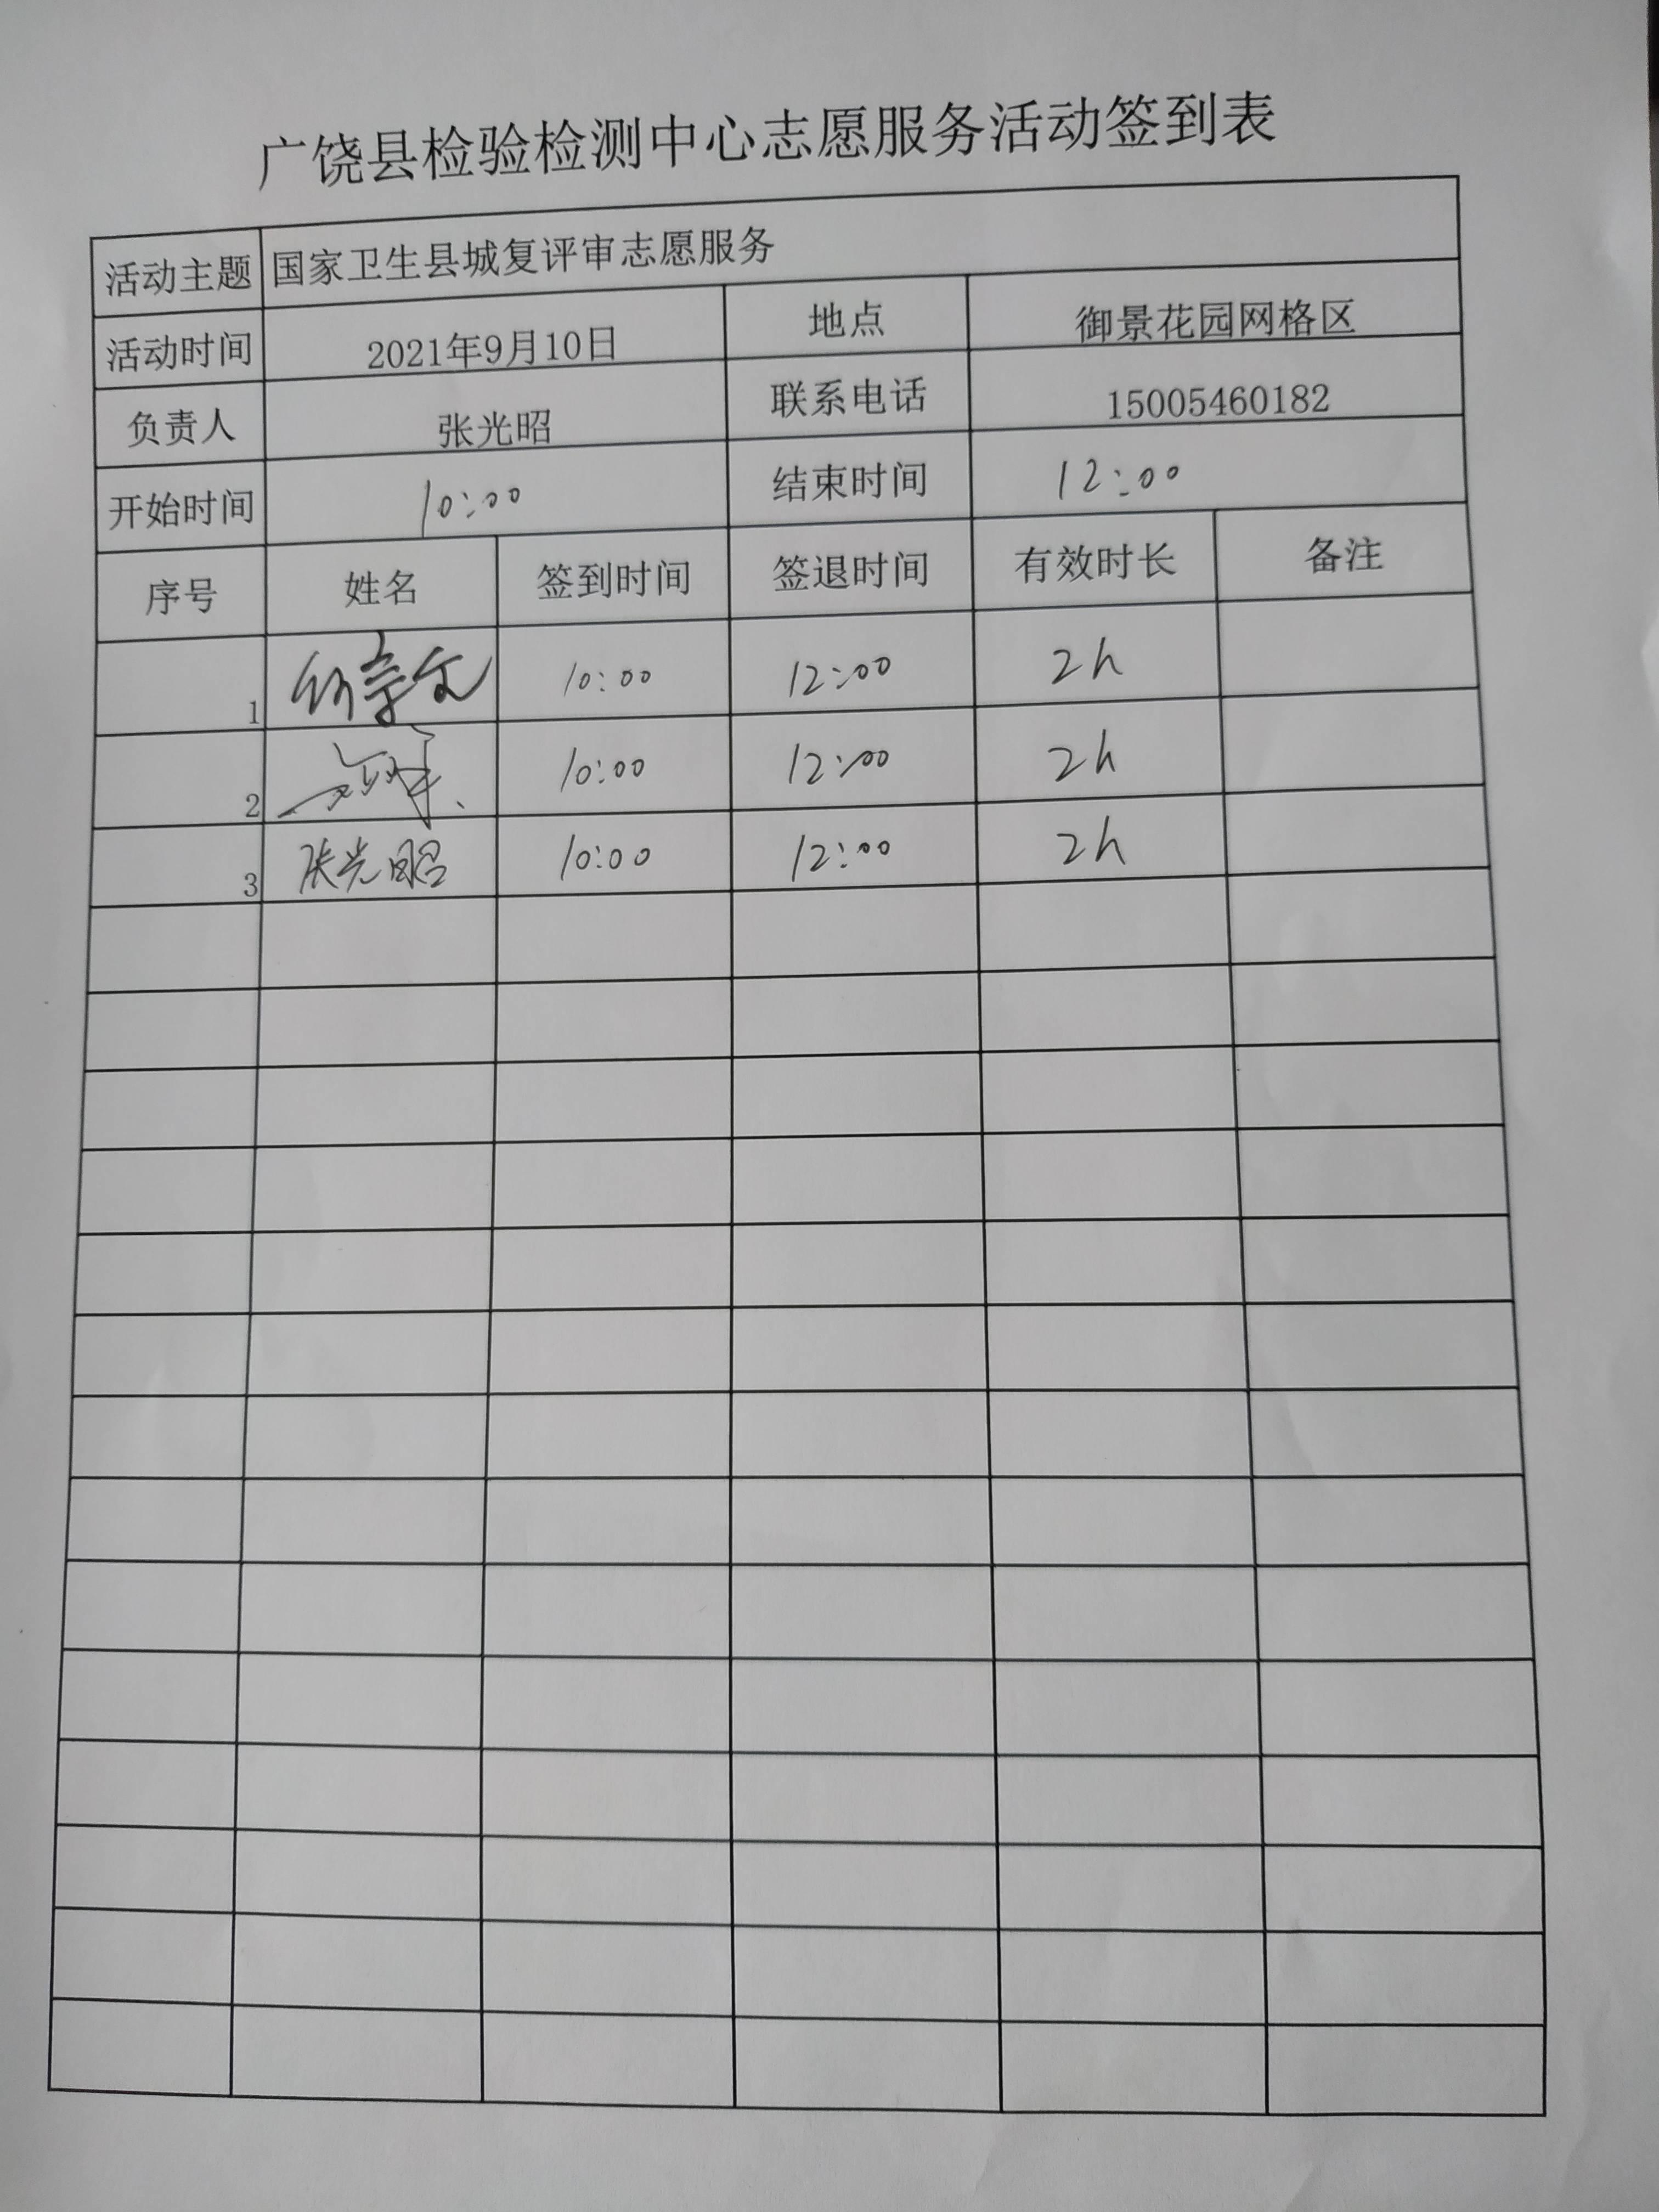 广饶县检验检测中心志愿服务活动签到表
活动主题 国家卫生县城复评审志愿服务
活动时间 2021年9月10日 地点 御景花园网格区
负责人 张光昭 联系电话 15005460182
开始时间 10:00 结束时间 12:00
序号 姓名 签到时间 签退时间 有效时长 备注
1 10:00 12:00 2h
2 10:00 12:00 2h
3 张光昭 10:00 12:00 2h